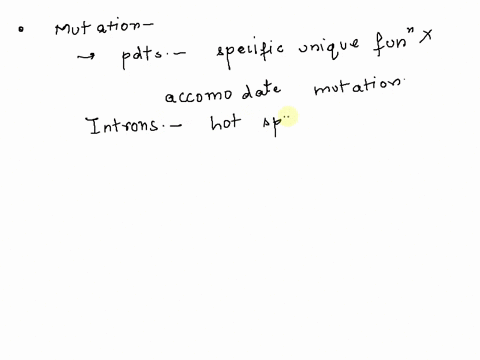 • Mutation-
→ pdts.- specific unique funⁿ X
accomo date mutation.
Introns.- hot sp